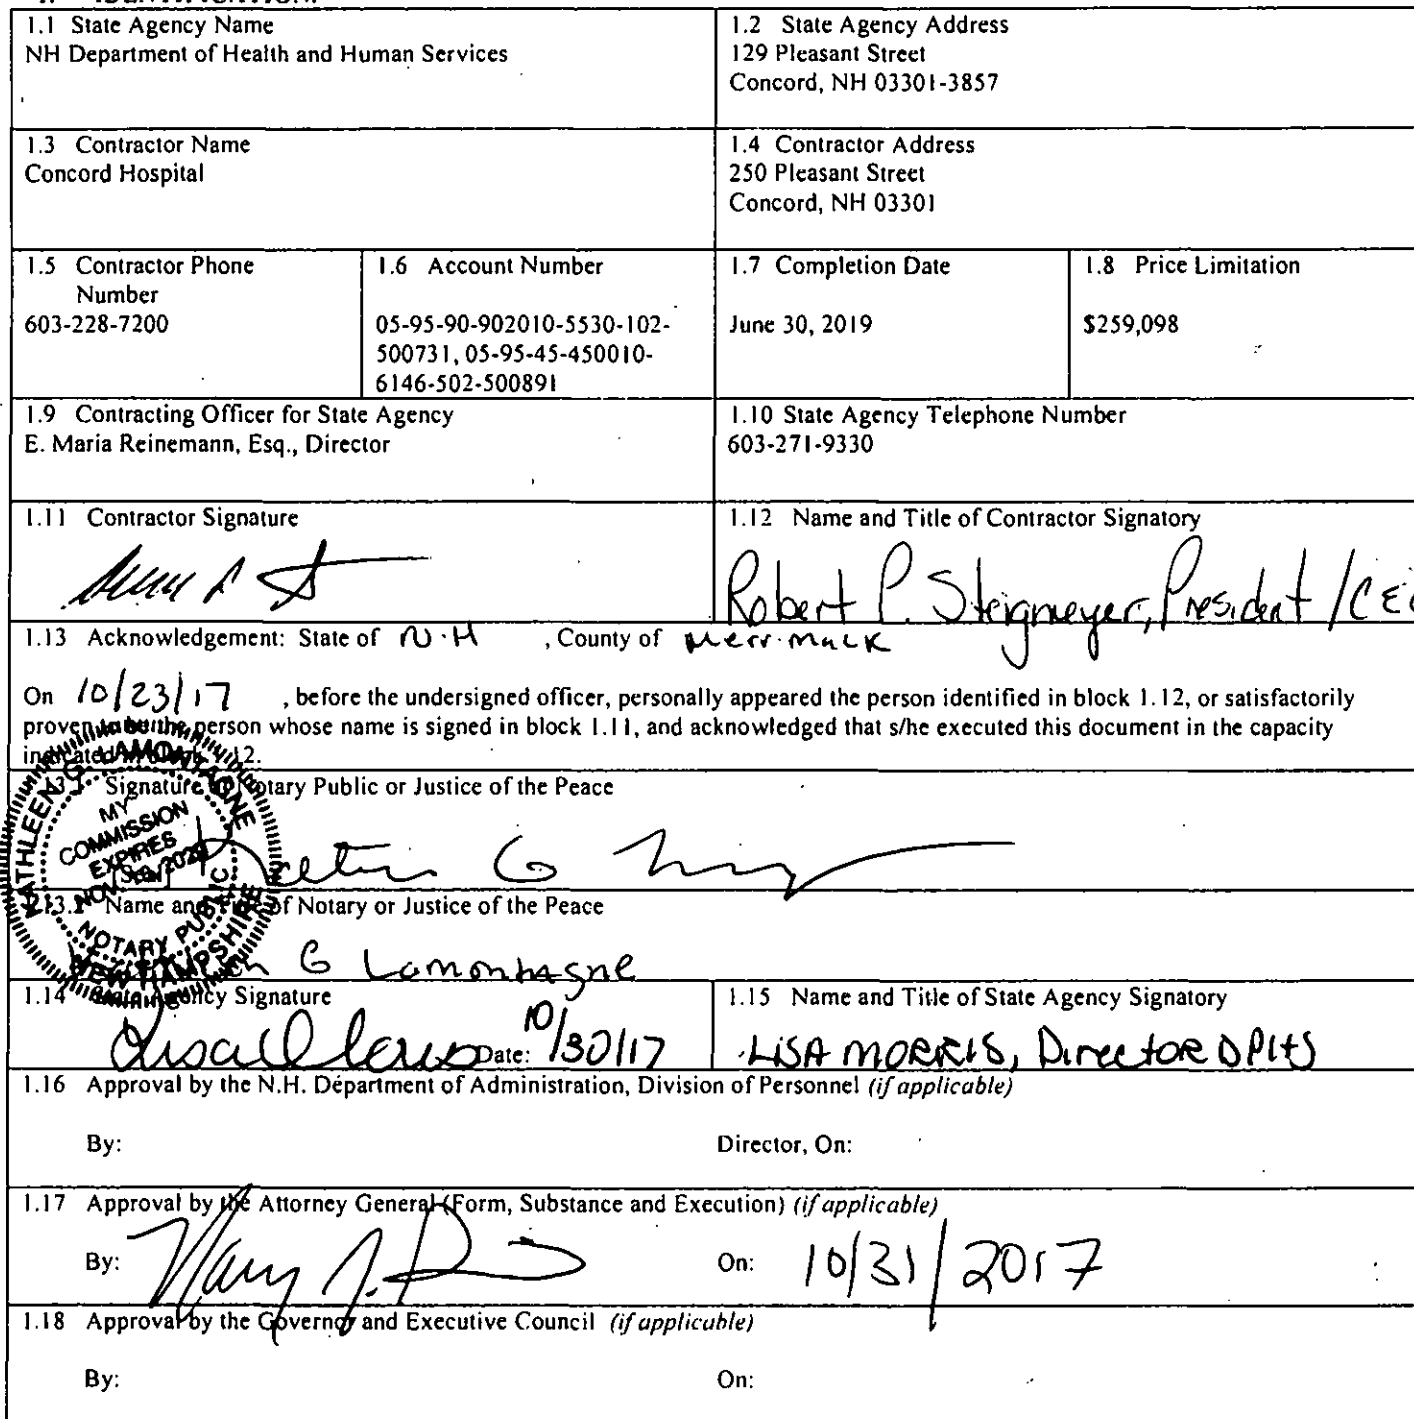 1.1 State Agency Name
NH Department of Health and Human Services
1.2 State Agency Address
129 Pleasant Street
Concord, NH 03301-3857
1.3 Contractor Name
Concord Hospital
1.4 Contractor Address
250 Pleasant Street
Concord, NH 03301
1.5 Contractor Phone
Number
603-228-7200
1.6 Account Number
05-95-90-902010-5530-102-
500731, 05-95-45-450010-
6146-502-500891
1.7 Completion Date
June 30, 2019
1.8 Price Limitation
$259,098
1.9 Contracting Officer for State Agency
E. Maria Reinemann, Esq., Director
1.10 State Agency Telephone Number
603-271-9330
1.11 Contractor Signature
1.12 Name and Title of Contractor Signatory
Robert P. Steigmeyer, President / CEO
1.13 Acknowledgement: State of N.H , County of Merrimack
On 10/23/17 , before the undersigned officer, personally appeared the person identified in block 1.12, or satisfactorily
proven to be the person whose name is signed in block 1.11, and acknowledged that s/he executed this document in the capacity
indicated in block 1.12.
Signature of Notary Public or Justice of the Peace
KATHLEEN G. LAMONTAGNE
MY
COMMISSION
EXPIRES
NOTARY PUBLIC
NEW HAMPSHIRE
1.13.2 Name and Title of Notary or Justice of the Peace
G Lamontagne
1.14 State Agency Signature
Date: 10/30/17
1.15 Name and Title of State Agency Signatory
LISA MORRIS, Director DPHS
1.16 Approval by the N.H. Department of Administration, Division of Personnel (if applicable)
By:
Director, On:
1.17 Approval by the Attorney General (Form, Substance and Execution) (if applicable)
By:
On: 10/31/2017
1.18 Approval by the Governor and Executive Council (if applicable)
By:
On: